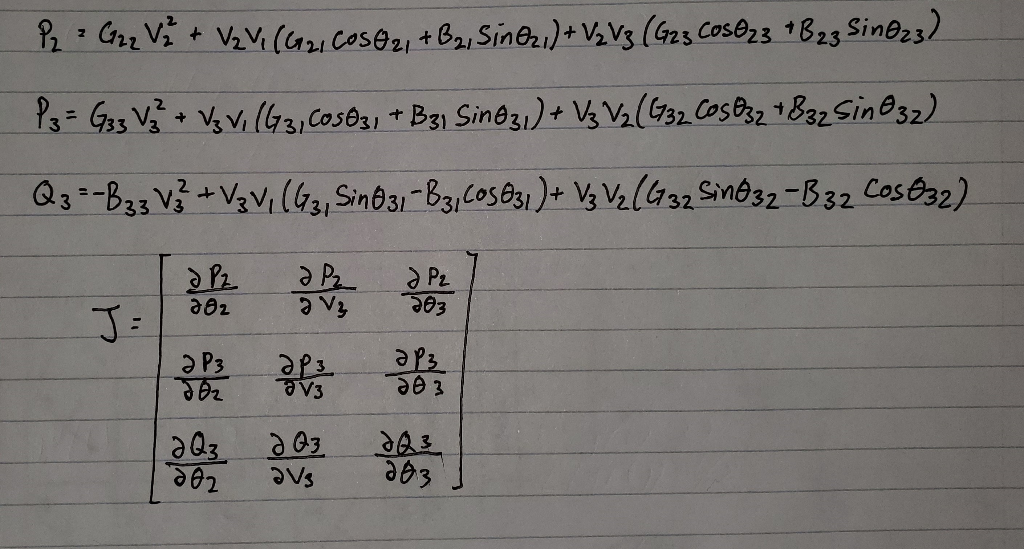 P₂ = G₂₂ V₂² + V₂V₁ (G₂₁ cosθ₂₁ + B₂₁ Sinθ₂₁) + V₂V₃ (G₂₃ cosθ₂₃ + B₂₃ Sinθ₂₃)
P₃ = G₃₃ V₃² + V₃V₁ (G₃₁ cosθ₃₁ + B₃₁ Sinθ₃₁) + V₃V₂ (G₃₂ cosθ₃₂ + B₃₂ Sinθ₃₂)
Q₃ = -B₃₃ V₃² + V₃V₁ (G₃₁ Sinθ₃₁ - B₃₁ cosθ₃₁) + V₃V₂ (G₃₂ Sinθ₃₂ - B₃₂ Cosθ₃₂)
J = [ ∂P₂/∂θ₂ ∂P₂/∂V₃ ∂P₂/∂θ₃
∂P₃/∂θ₂ ∂P₃/∂V₃ ∂P₃/∂θ₃
∂Q₃/∂θ₂ ∂Q₃/∂V₃ ∂Q₃/∂θ₃ ]